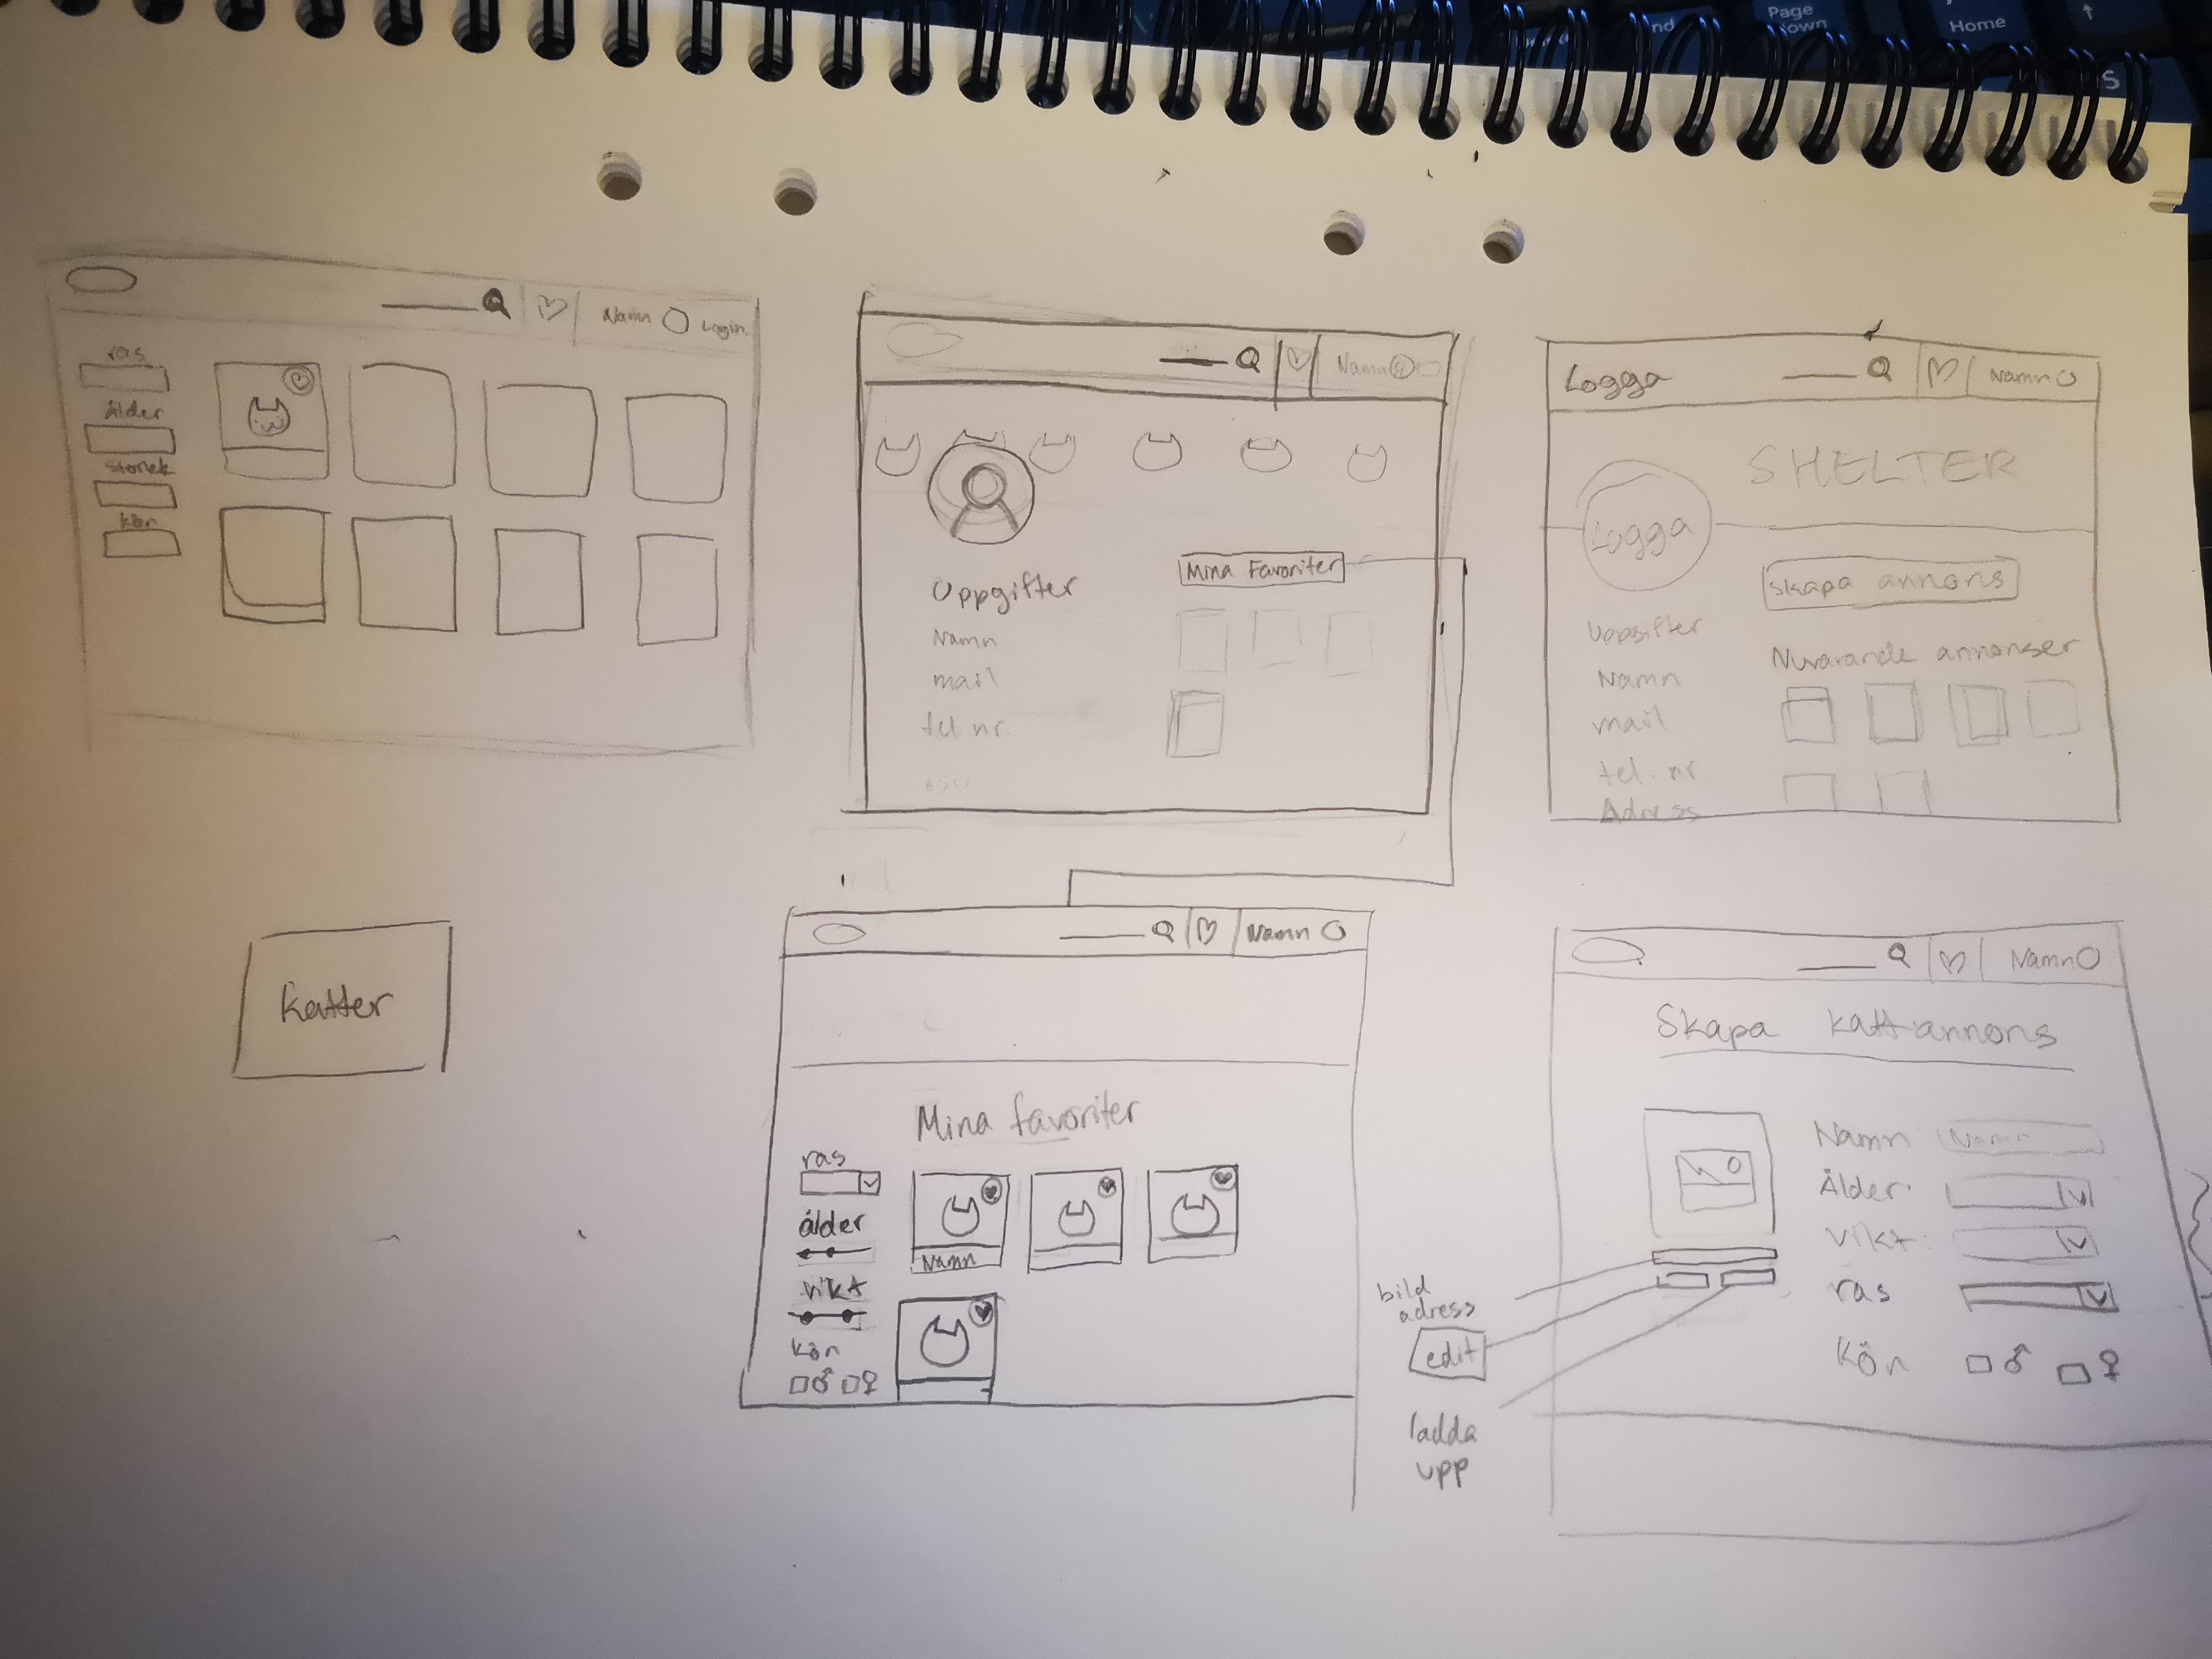 Page
Down
Home
Namn
Login
ras
ålder
storlek
kön
Namn
Uppgifter
Namn
mail
tel nr.
osv
Mina Favoriter
Logga
Namn
SHELTER
Logga
Skapa annons
Uppgifter
Namn
mail
tel. nr
Adress
Nuvarande annonser
Katter
Namn
Mina favoriter
ras
ålder
vikt
kön
♂ ♀
Namn
Namn
Skapa kattannons
Namn Namn
Ålder
Vikt
ras
Kön ♂ ♀
bild
adress
edit
ladda
upp